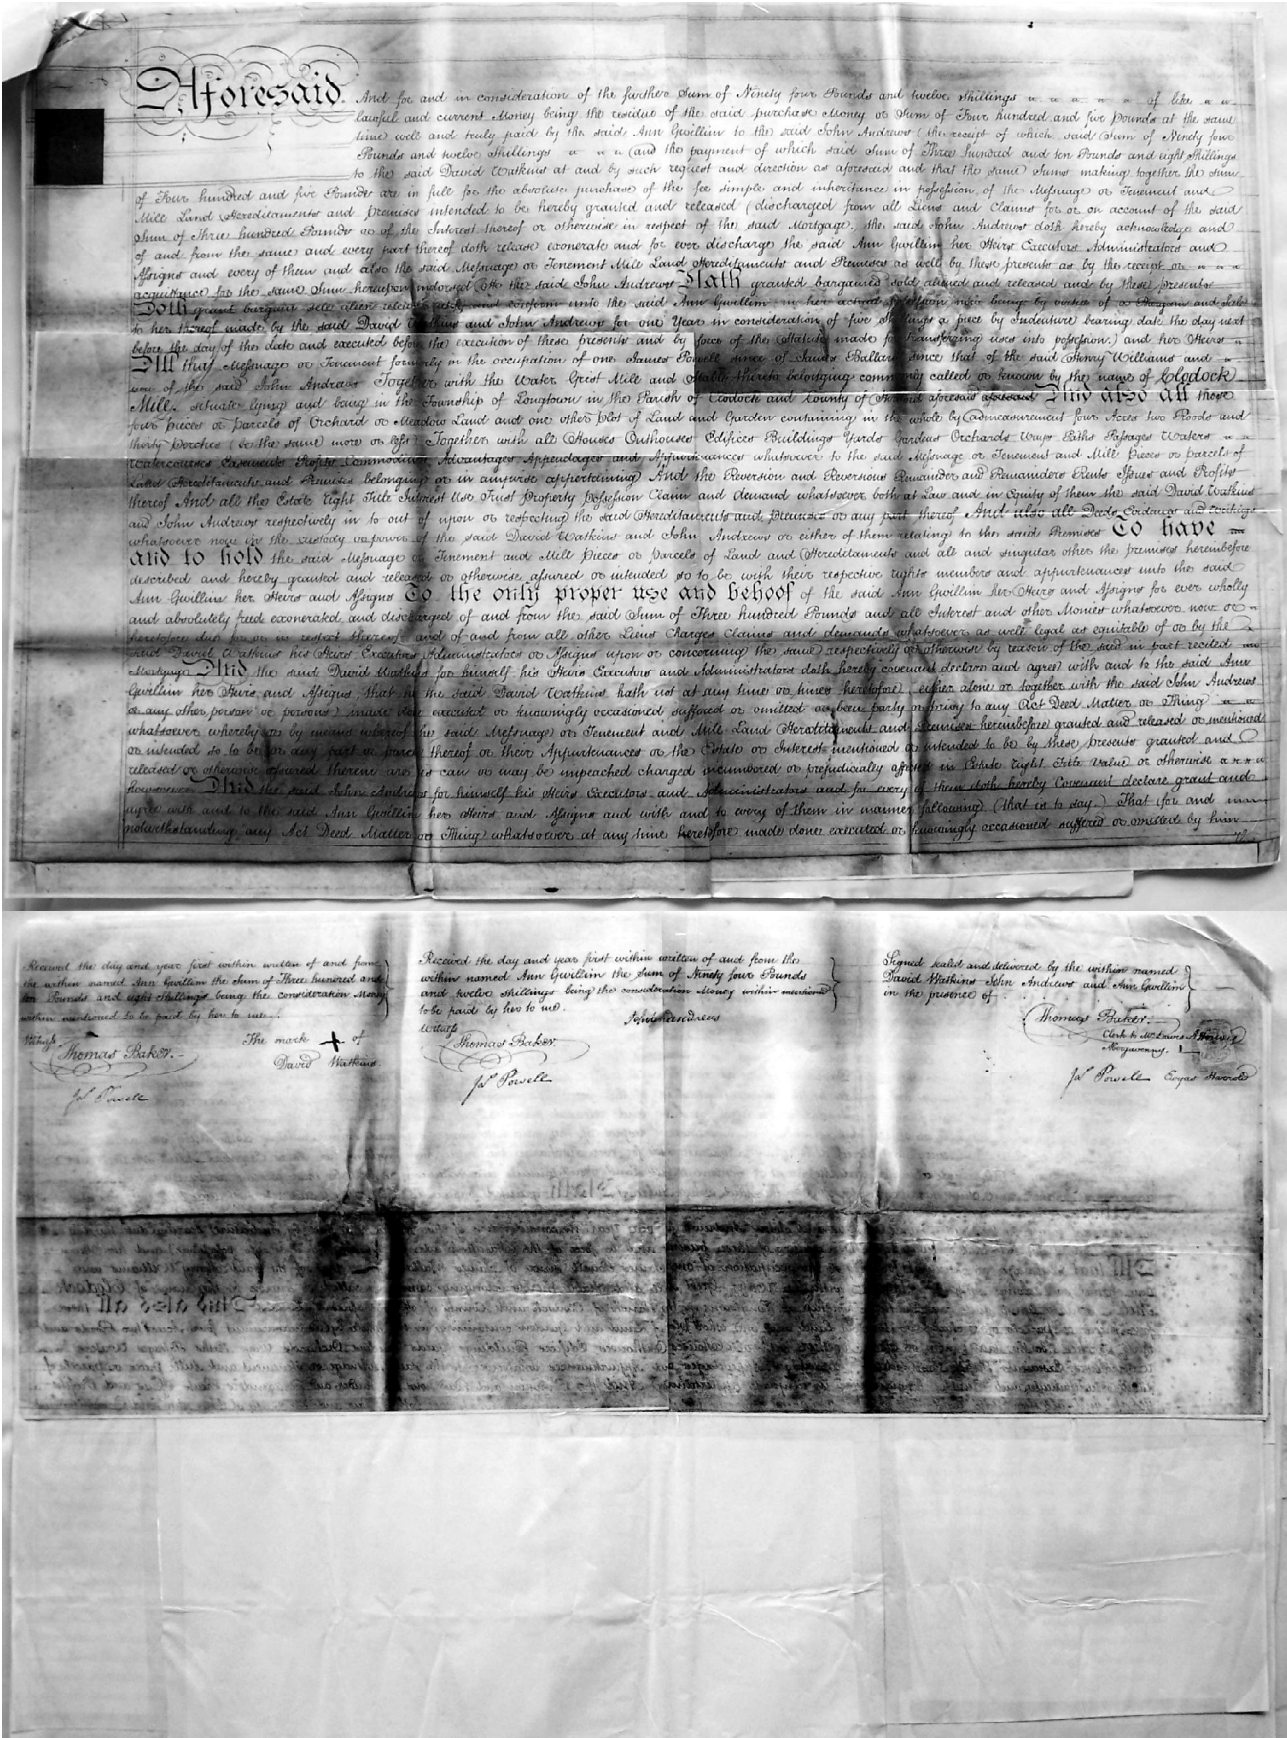 Aforesaid And for and in consideration of the further Sum of Ninety four Pounds and twelve shillings of like
lawful and current Money being the residue of the said purchase Money or Sum of Four hundred and five Pounds at the same
time well and truly paid by the said Ann Gwillim to the said John Andrews (the receipt of which said Sum of Ninety four
Pounds and twelve shillings (and the payment of which said Sum of Three hundred and ten Pounds and eight Shillings
to the said David Watkins at and by such request and direction as aforesaid and that the same Sums making together the Sum
of Four hundred and five Pounds are in full for the absolute purchase of the fee simple and inheritance in possession of the Messuage or Tenement and
Mill Land Hereditaments and premises intended to be hereby granted and released (discharged from all Liens and Claims for or on account of the said
Sum of Three hundred Pounds or of the Interest thereof or otherwise in respect of the said Mortgage) the said John Andrews doth hereby acknowledge and
of and from the same and every part thereof doth release exonerate and for ever discharge the said Ann Gwillim her Heirs Executors Administrators and
Assigns and every of them and also the said Messuage or Tenement Mill Land Hereditaments and Premises as well by these presents as by the receipt or
acquittance for the same Sum hereupon indorsed He the said John Andrews Hath granted bargained sold aliened and released and by these presents
Doth grant bargain sell alien release and confirm unto the said Ann Gwillim in her actual possession now being by virtue of a Bargain and Sale
to her thereof made by the said David Watkins and John Andrews for one Year in consideration of five shillings a piece by Indenture bearing date the day next
before the day of the date and executed before the execution of these presents and by force of the Statute made for transferring uses into possession) and her Heirs
All that Messuage or Tenement formerly in the occupation of one James Powell since of James Ballard since that of the said Henry Williams and
now of the said John Andrews Together with the Water Grist Mill and Stable thereto belonging commonly called or known by the name of Clodock
Mill. situate lying and being in the Township of Longtown in the Parish of Clodock and County of Hereford aforesaid And also all those
four pieces or parcels of Orchard or Meadow Land and one other Plot of Land and Garden containing in the whole by Admeasurement four Acres two Roods and
thirty Perches (be the same more or less) Together with all Houses Outhouses Edifices Buildings Yards Gardens Orchards Ways Paths Passages Waters
Watercourses Easements Profits Commodities Advantages Appendages and Appurtenances whatsoever to the said Messuage or Tenement and Mill Pieces or parcels of
Land Hereditaments and Premises belonging or in anywise appertaining And the Reversion and Reversions Remainder and Remainders Rents Issues and Profits
thereof And all the Estate Right Title Interest Use Trust property possession Claim and demand whatsoever both at Law and in Equity of them the said David Watkins
and John Andrews respectively in to out of upon or respecting the said Hereditaments and premises or any part thereof And also all Deeds Evidences and Writings
whatsoever now in the custody or power of the said David Watkins and John Andrews or either of them relating to the said Premises To have
and to hold the said Messuage or Tenement and Mill Pieces or Parcels of Land and Hereditaments and all and singular other the premises hereinbefore
described and hereby granted and released or otherwise assured or intended so to be with their respective rights members and appurtenances unto the said
Ann Gwillim her Heirs and Assigns To the only proper use and behoof of the said Ann Gwillim her Heirs and Assigns for ever wholly
and absolutely freed exonerated and discharged of and from the said Sum of Three hundred Pounds and all Interest and other Monies whatsoever now or
heretofore due for or in respect thereof and of and from all other Liens Charges Claims and demands whatsoever as well legal as equitable of or by the
said David Watkins his Heirs Executors Administrators or Assigns upon or concerning the same respectively or otherwise by reason of the said in part recited
Mortgage And the said David Watkins for himself his Heirs Executors and Administrators doth hereby covenant declare and agree with and to the said Ann
Gwillim her Heirs and Assigns that he the said David Watkins hath not at any time or times heretofore either alone or together with the said John Andrews
or any other person or persons) made done executed or knowingly occasioned suffered or omitted or been party or privy to any Act Deed Matter or Thing
whatsoever whereby or by means whereof the said Messuage or Tenement and Mill Land Hereditaments and Premises hereinbefore granted and released or mentioned
or intended so to be or any part or parcel thereof or their Appurtenances or the Estate or Interest mentioned or intended to be by these presents granted and
released or otherwise assured therein are is can or may be impeached charged incumbered or prejudicially affected in Estate right Title Value or otherwise
howsoever And the said John Andrews for himself his Heirs Executors and Administrators and for every of them doth hereby Covenant declare grant and
agree with and to the said Ann Gwillim her Heirs and Assigns and with and to every of them in manner following (that is to say) That (for and
notwithstanding any Act Deed Matter or Thing whatsoever at any time heretofore made done executed or knowingly occasioned suffered or omitted by him
Received the day and year first within written of and from
the within named Ann Gwillim the Sum of Three hundred and
ten Pounds and eight shillings being the consideration Money
within mentioned to be paid by her to me.
Witness
Thomas Baker.
The mark + of
David Watkins
Jas Powell
Received the day and year first within written of and from the
within named Ann Gwillim the Sum of Ninety four Pounds
and twelve shillings being the consideration Money within mentioned
to be paid by her to me.
John Andrews
Witness
Thomas Baker.
Jas Powell
Signed sealed and delivered by the within named
David Watkins John Andrews and Ann Gwillim
in the presence of
Thomas Baker.
Clerk to Mr
Abergavenny.
Jas Powell Ewyas Harrold